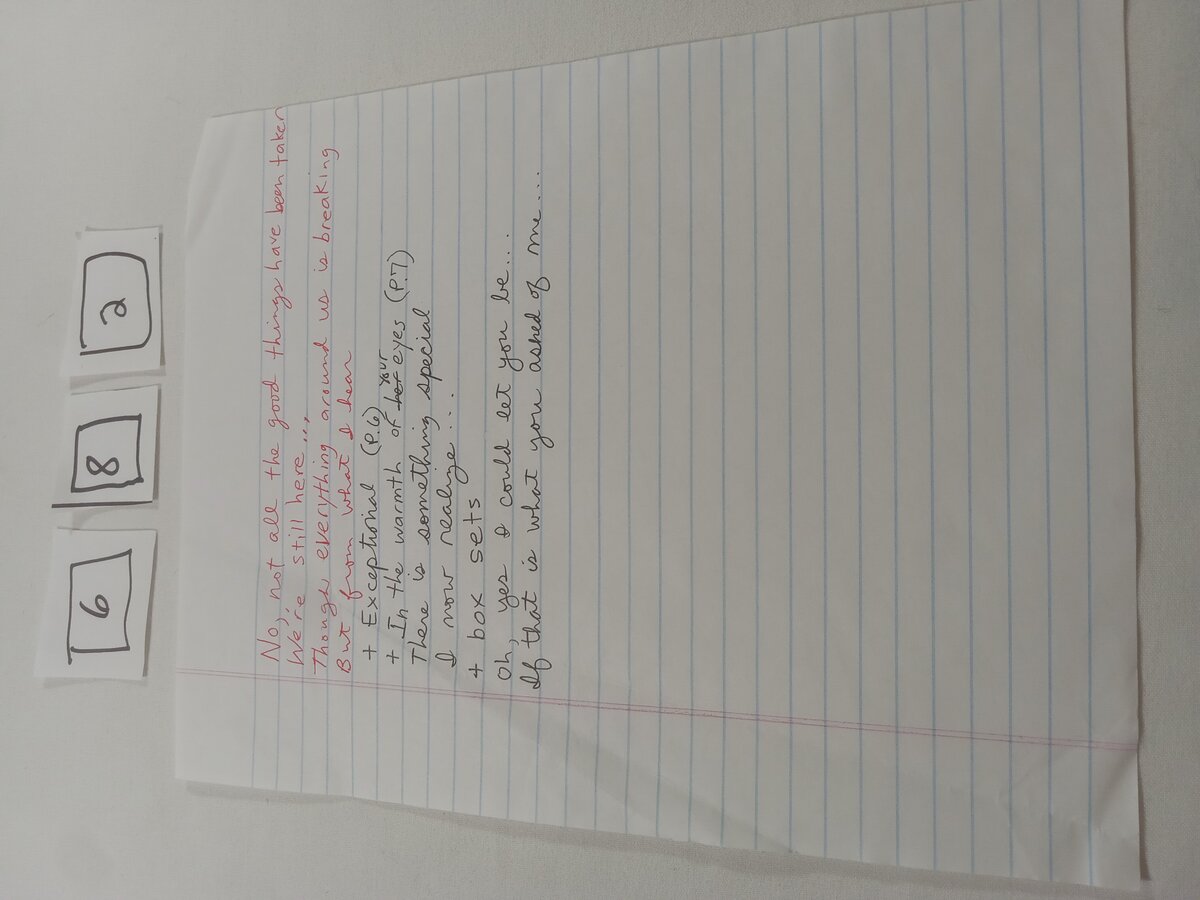 6 8 2
No, not all the good things have been taken
We're still here...,
Though everything around us is breaking
But from what I hear
+ Exceptional (P.6)
+ In the warmth of her your eyes (P.7)
There is something special
I now realize...
+ box sets
Oh, yes I could let you be....
If that is what you asked of me....